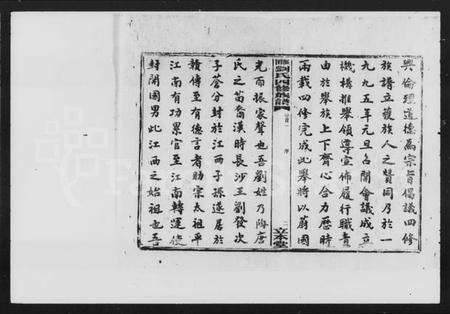 與倫理道德為宗旨倡議四修
族譜立獲族人之贊同乃於一
九九五年元旦召開會議成立
機構推舉領導宣佈履行職責
由於舉族上下齊心合力歷時
兩載四修完成此舉將以蔚國
劉氏四修族譜
光而振家聲也吾劉姓乃陶唐
氏之苗裔漢時長沙王劉發次
子蒼分封於江西子孫遂居於
贛傳至有德言者助宗太祖平
江南有功累官至江南轉運使
封開國男此江西之始祖也吾